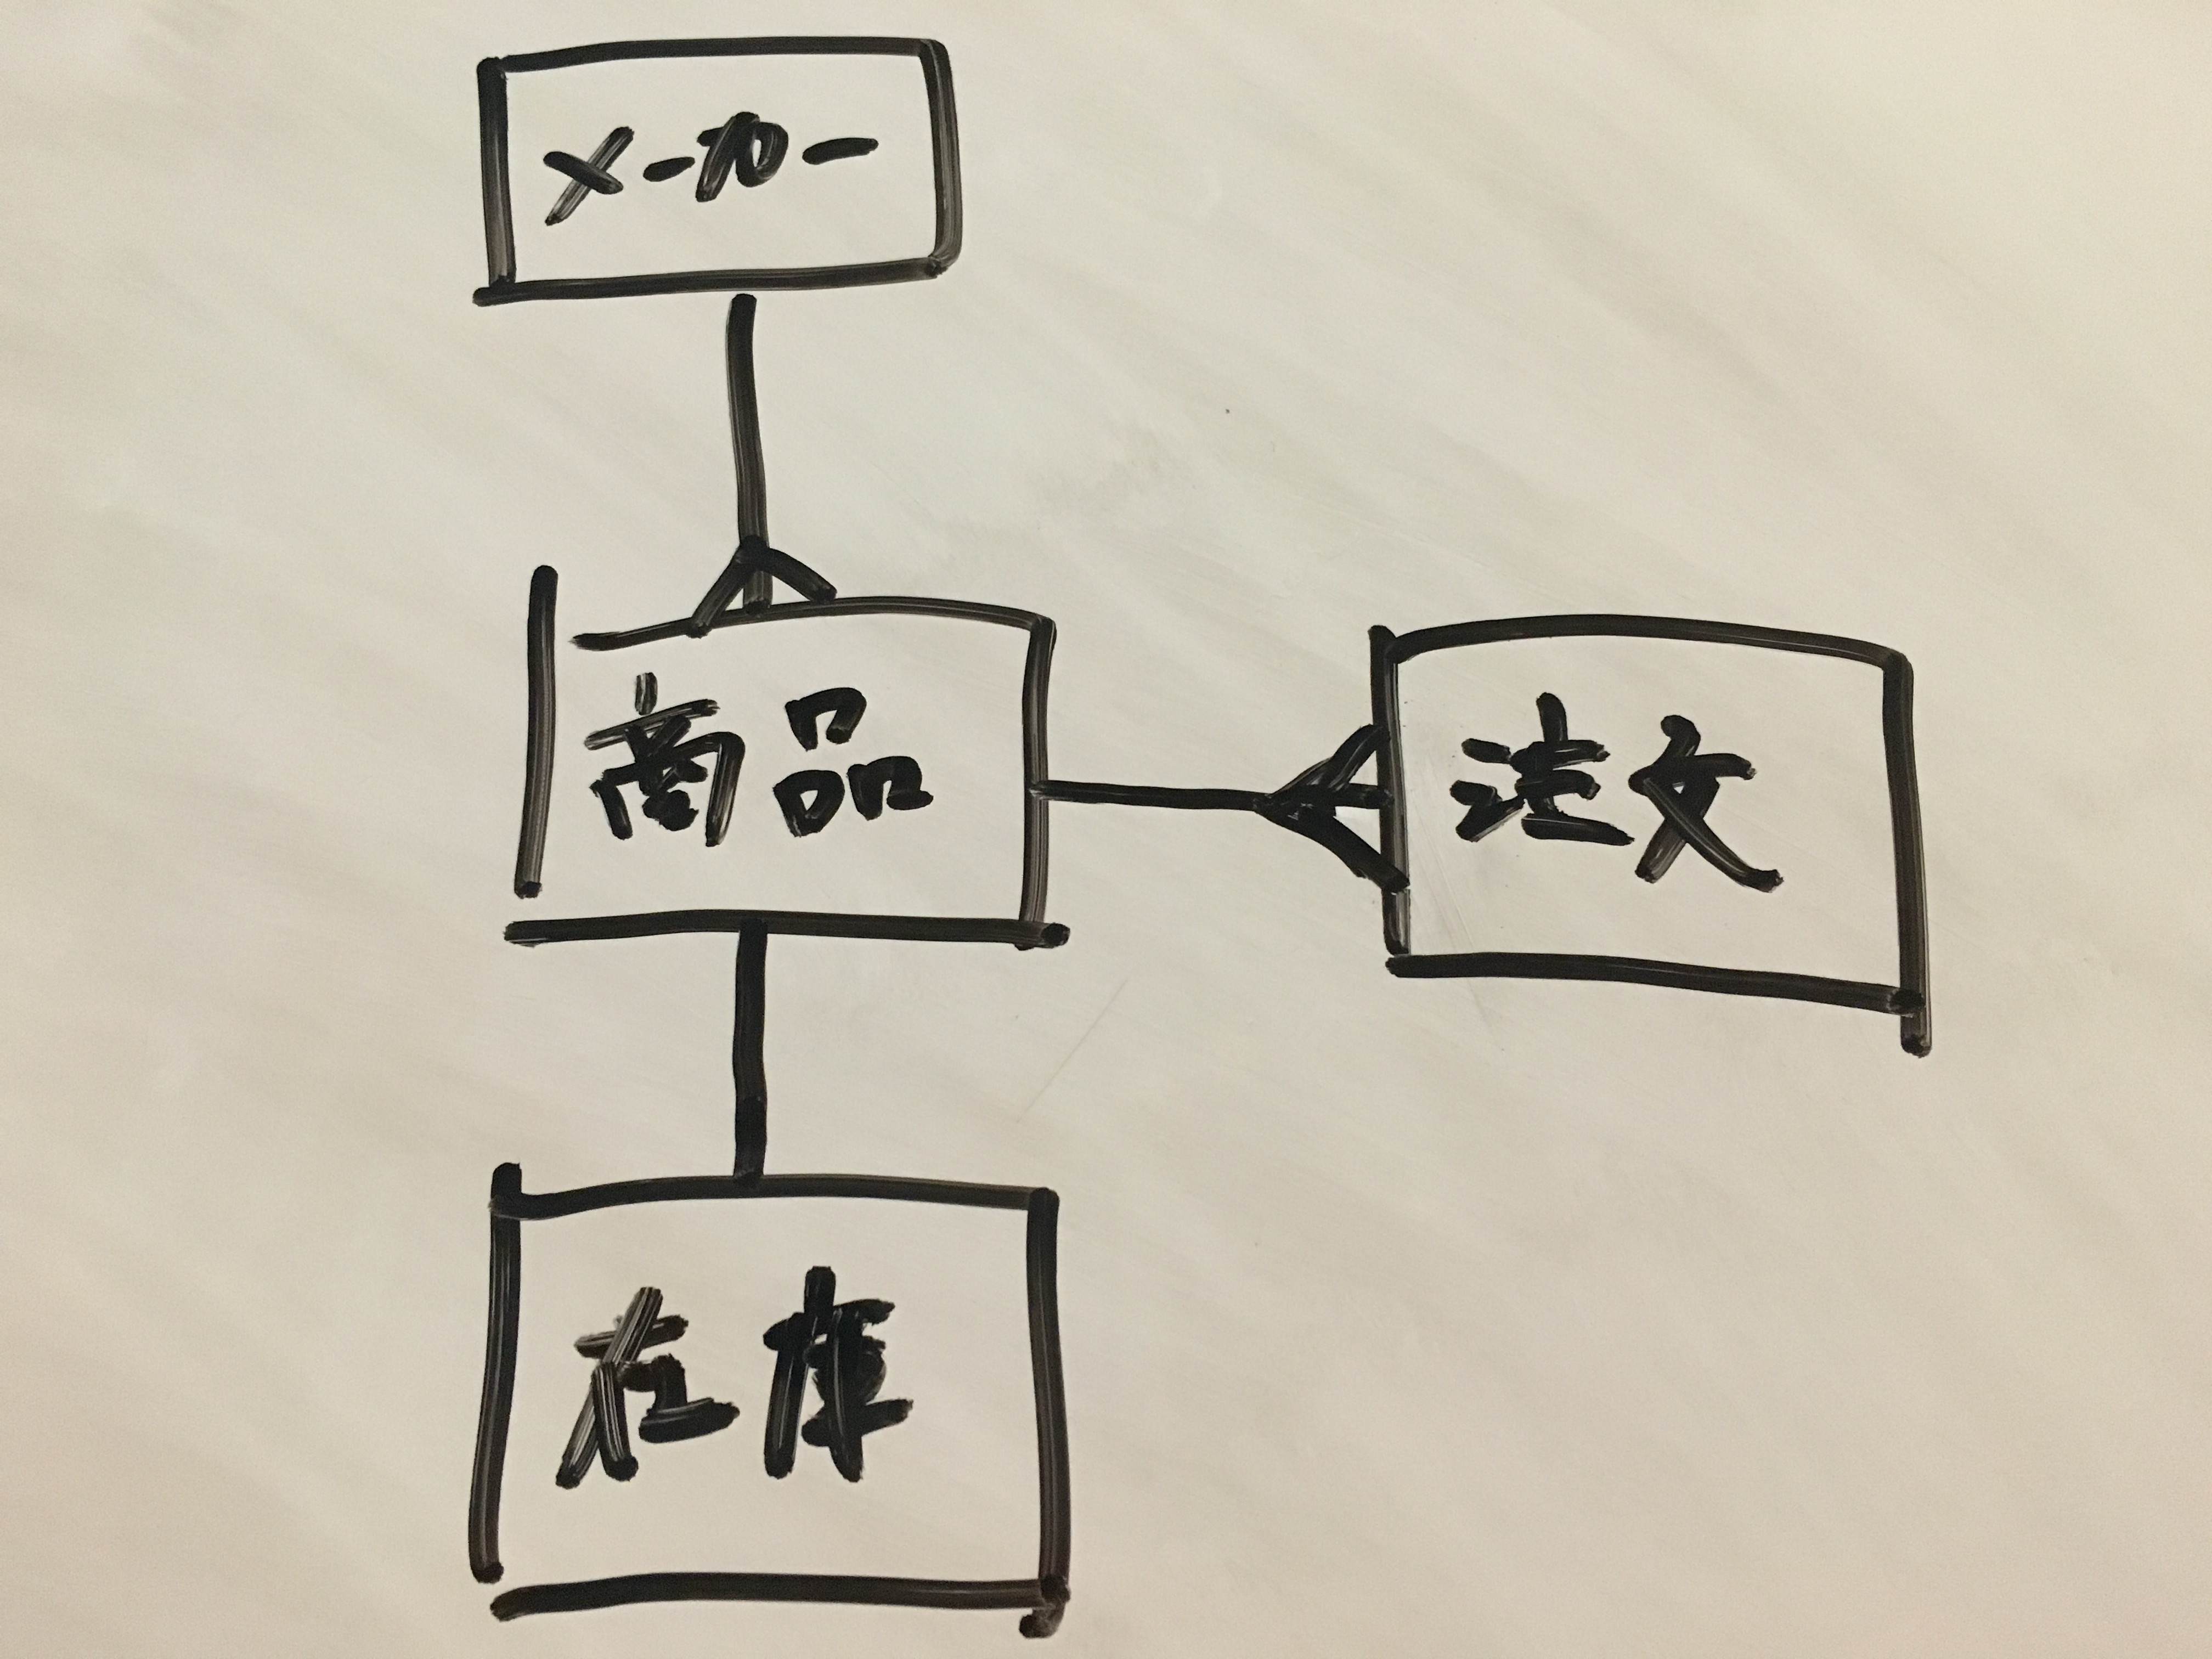 メーカー
商品
注文
在庫